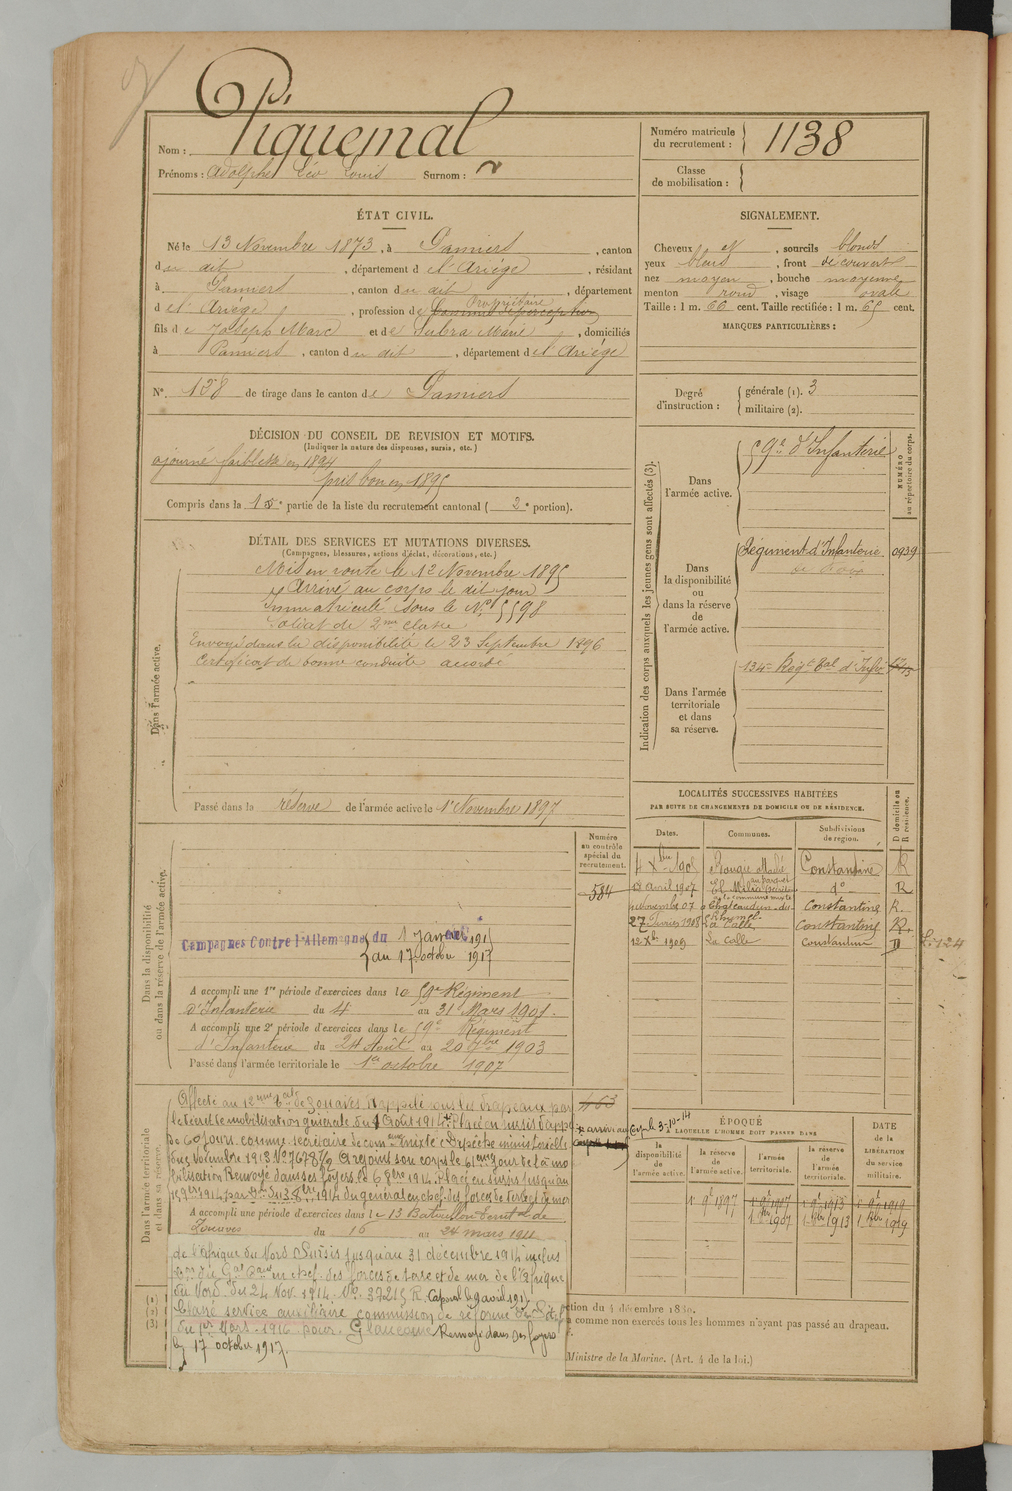 Piquemal
Nom :
Prénoms : Adolphe Léo Louis Surnom :
Numéro matricule du recrutement : 1138
Classe de mobilisation :
ÉTAT CIVIL.
Né le 13 Novembre 1873, à Pamiers, canton
du dit, département de l'Ariége, résidant
à Pamiers, canton du dit, département
d e l'Ariége, profession de Propriétaire
fils de Joseph Marc et de Subra Marie, domiciliés
à Pamiers, canton du dit, département de l'Ariége
N° 158 de tirage dans le canton de Pamiers
SIGNALEMENT.
Cheveux et, sourcils blonds
yeux bleus, front découvert
nez moyen, bouche moyenne
menton rond, visage ovale
Taille : 1 m. 66 cent. Taille rectifiée : 1 m. 65 cent.
MARQUES PARTICULIÈRES :
Degré d'instruction : générale (1). 3
militaire (2).
DÉCISION DU CONSEIL DE REVISION ET MOTIFS.
(Indiquer la nature des dispenses, sursis, etc.)
ajourné faiblesse en 1894
pris bon en 1895
Compris dans la 1e partie de la liste du recrutement cantonal ( 2e portion).
DÉTAIL DES SERVICES ET MUTATIONS DIVERSES.
(Campagnes, blessures, actions d'éclat, décorations, etc.)
Dans l'armée active.
Mis en route le 12 Novembre 1895
Arrivé au corps le dit jour
Immatriculé sous le N° 5598
Soldat de 2me classe
Envoyé dans la disponibilité le 23 Septembre 1896
Certificat de bonne conduite accordé
Passé dans la réserve de l'armée active le 1r Novembre 1897
Indication des corps auxquels les jeunes gens sont affectés (3).
NUMÉRO au répertoire du corps.
Dans l'armée active.
59e d'Infanterie
Dans la disponibilité ou dans la réserve de l'armée active.
Régiment d'Infanterie 0939
de Foix
Dans l'armée territoriale et dans sa réserve.
134e Régt Tal d'Infie
LOCALITÉS SUCCESSIVES HABITÉES
PAR SUITE DE CHANGEMENTS DE DOMICILE OU DE RÉSIDENCE.
Dates. Communes. Subdivisions de région. D domicile ou R résidence.
4 Xbre 1905 Constantine R
13 avril 1907 El Milia do R
Novembre 07 Chateaudun-du-Rhumel Constantine R.
27 Février 1908 La Calle Constantine R.
12 Xbre 1909 La Calle Constantine D
Dans la disponibilité ou dans la réserve de l'armée active.
Numéro au contrôle spécial du recrutement.
584
Campagnes Contre l'Allemagne du 1 Janvier 191
au 17 octobre 1917
A accompli une 1re période d'exercices dans le 59e Régiment
d'Infanterie du 4 au 31 Mars 1901.
A accompli une 2e période d'exercices dans le 59e Régiment
d'Infanterie du 24 Août au 20 7bre 1903
Passé dans l'armée territoriale le 1er octobre 1907
Dans l'armée territoriale et dans sa réserve.
Affecté au 12eme Bat. de Zouaves Rappelé sous les drapeaux par
le décret de mobilisation générale du 1 Août 1914. Placé en sursis d'appel
de 60 jours comme secrétaire de comune mixte Dépêche ministérielle
du 15 Novembre 1913 N° 7678 A rejoint son corps le 61eme jour de la mo
bilisation Renvoyé dans ses foyers le 6 8bre 1914. Placé en sursis jusqu'au
1914 du général en chef des forces de terre et de mer
A accompli une période d'exercices dans le 13 Bataillon Territal de
Zouaves du 16 au 24 mars 1911
de l'Afrique du Nord Sursis jusqu'au 31 décembre 1914 inclus
en chef des forces de terre et de mer de l'Afrique
du Nord du 24 Nov. 1914. N° 3721 Caporal le 9 avril 191
Classé service auxiliaire commission de réforme de
du 1er Mars 1916 pour Glaucome Renvoyé dans ses foyers
le 17 octobre 1917.
463
arrivé au Corps le 3-10-14
ÉPOQUE
A LAQUELLE L'HOMME DOIT PASSER DANS
la disponibilité de l'armée active. la réserve de l'armée active. l'armée territoriale. la réserve de l'armée territoriale.
DATE de la LIBÉRATION du service militaire.
1 9bre 1897 1 9bre 1907 1 9bre 1913 1 9bre 1919
1 8bre 1907 1 8bre 1913 1 8bre 1919
(1)
(2)
(3)
ction du 4 décembre 1889.
comme non exercés tous les hommes n'ayant pas passé au drapeau.
Ministre de la Marine. (Art. 4 de la loi.)